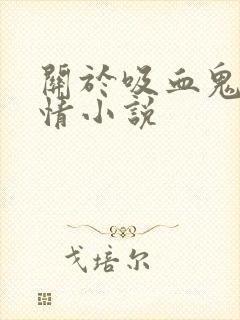 關於吸血鬼
情小說
戈培尔